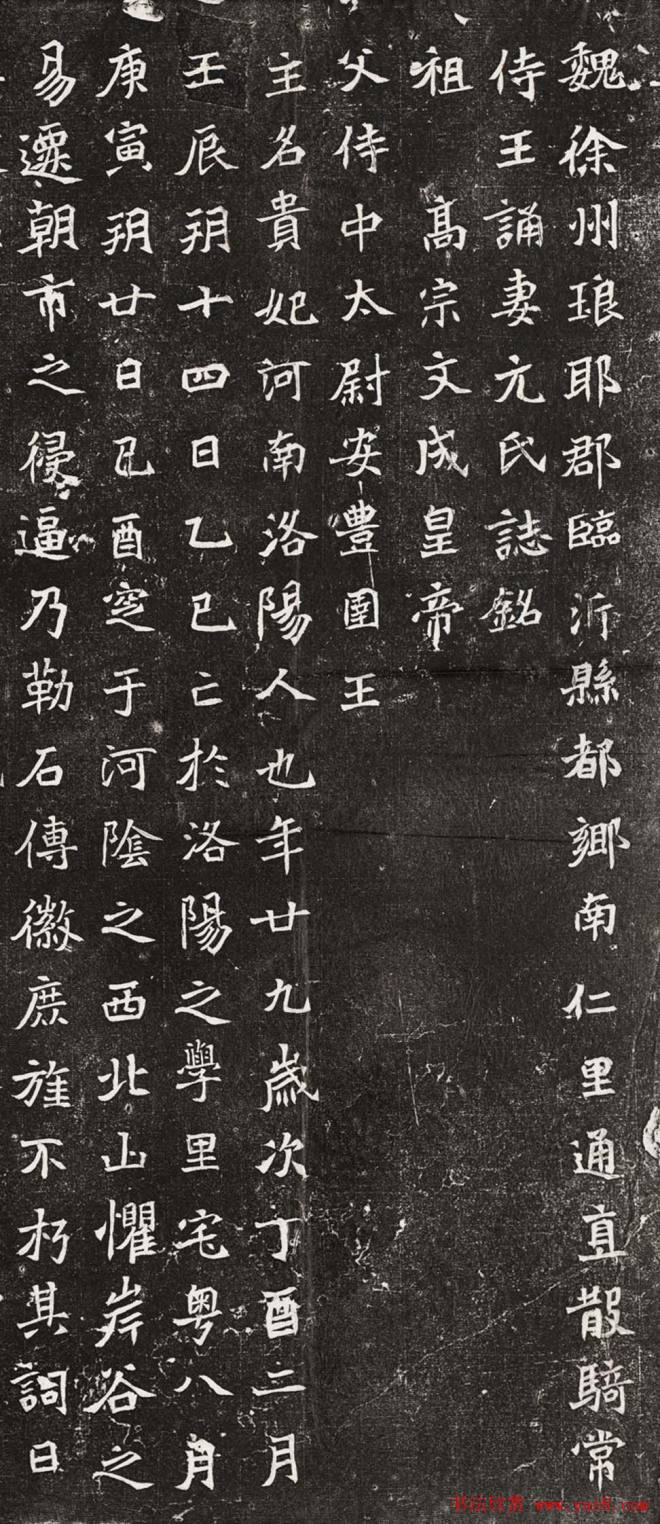 魏徐州琅耶郡臨沂縣都鄉南仁里通直散騎常
侍王誦妻元氏誌銘
祖 高宗文成皇帝
父侍中太尉安豐圉王
主名貴妃河南洛陽人也年廿九歲次丁酉二月
壬辰朔十四日乙巳亡於洛陽之學里宅粤八月
庚寅朔廿日己酉窆于河陰之西北山懼岸谷之
易遷朝市之侵逼乃勒石傳徽庶旌不朽其詞曰
www.yac8.com